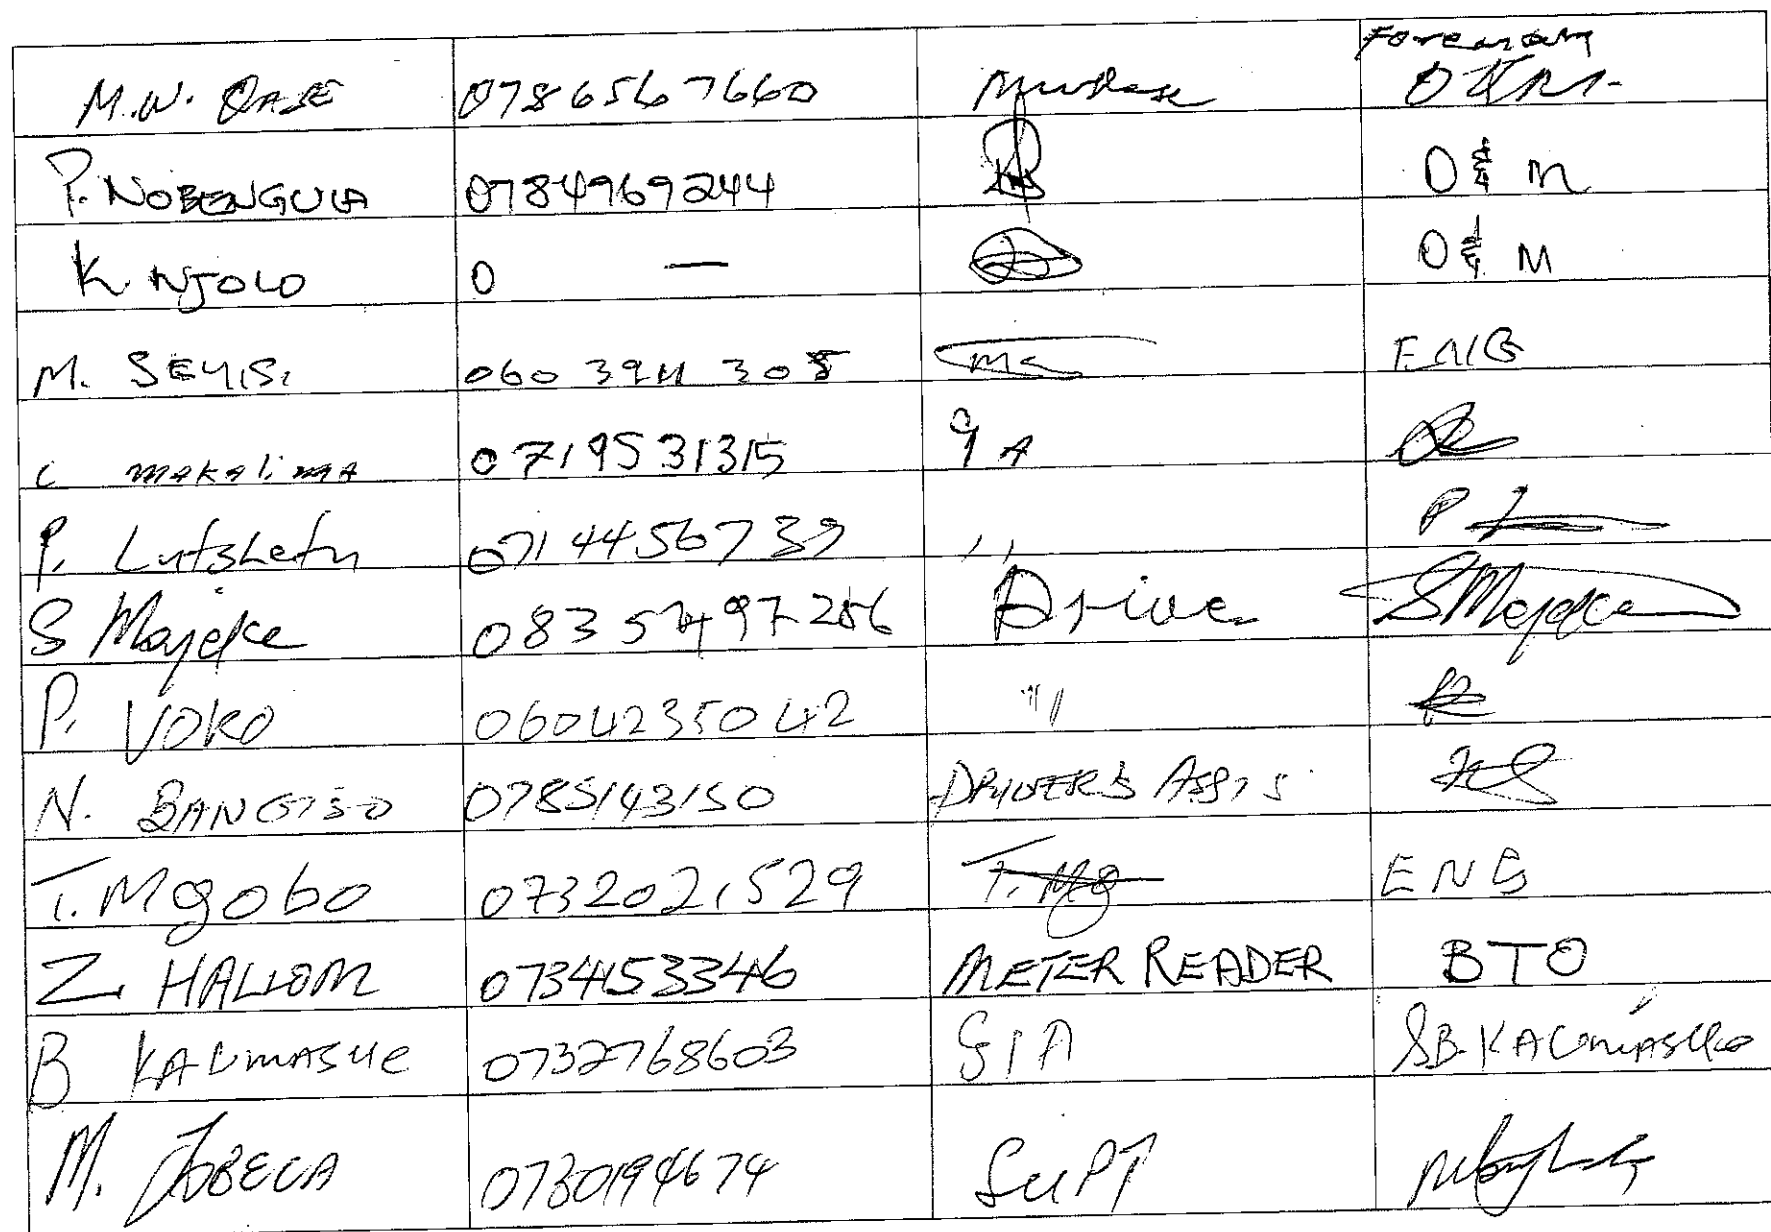 Foreman
M.W. QASE 0786567660
P. NOBENGULA 0784969244 O & M
K. NJOLO 0 — O & M
M. SEYISI 060 3911 308 ENG
C MAKALIMA 0719531315 G A
P. Lutshetu 0714456739 ,,
S Majeke 083 Drive SMajeke
P. VOKO 0604235042 "
N. BANGISO 0785143150 DRIVERS ASSIS
T. Mgobo 0732021529 T. Mg ENG
Z. HALLOM 0734153346 METER READER BTO
B KALUMASHE 0732768603 G/A SB. KALUMASHE
M. JOBELA 0730194674 SUPT